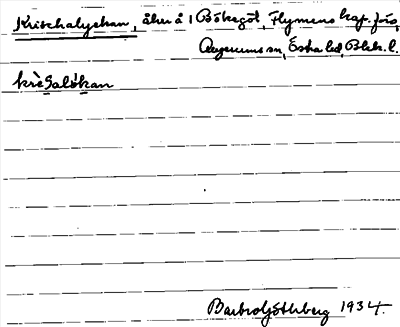 Krischalyckan, åker å 1 Böksgöl, Flymens kap. förs,
Augerums sn, Östra hd, Blek. l.
krèsalökan
Barbro Göthberg 1934.